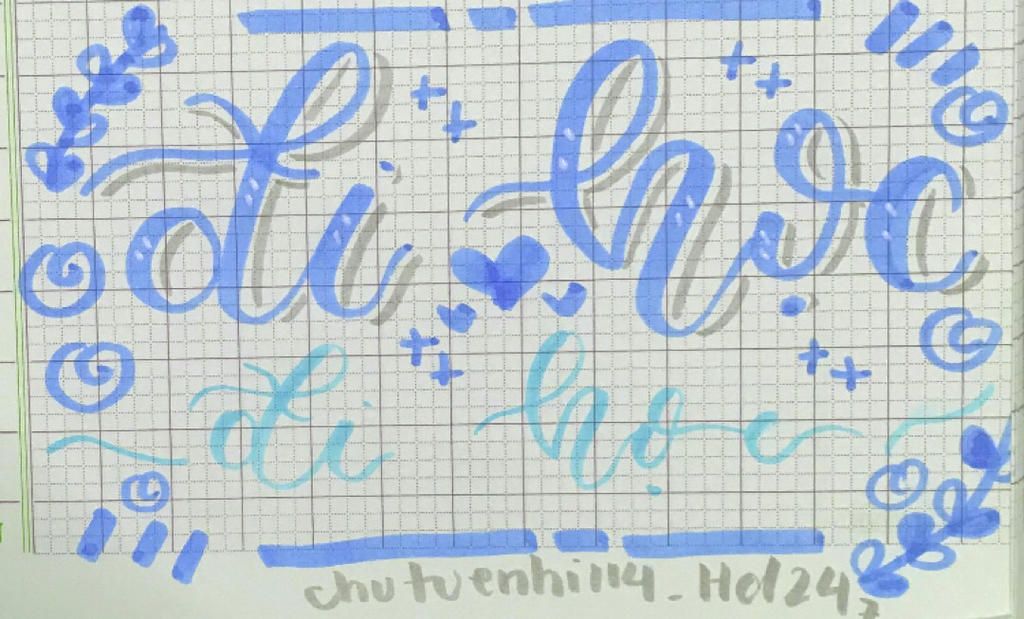 đi học
đi học